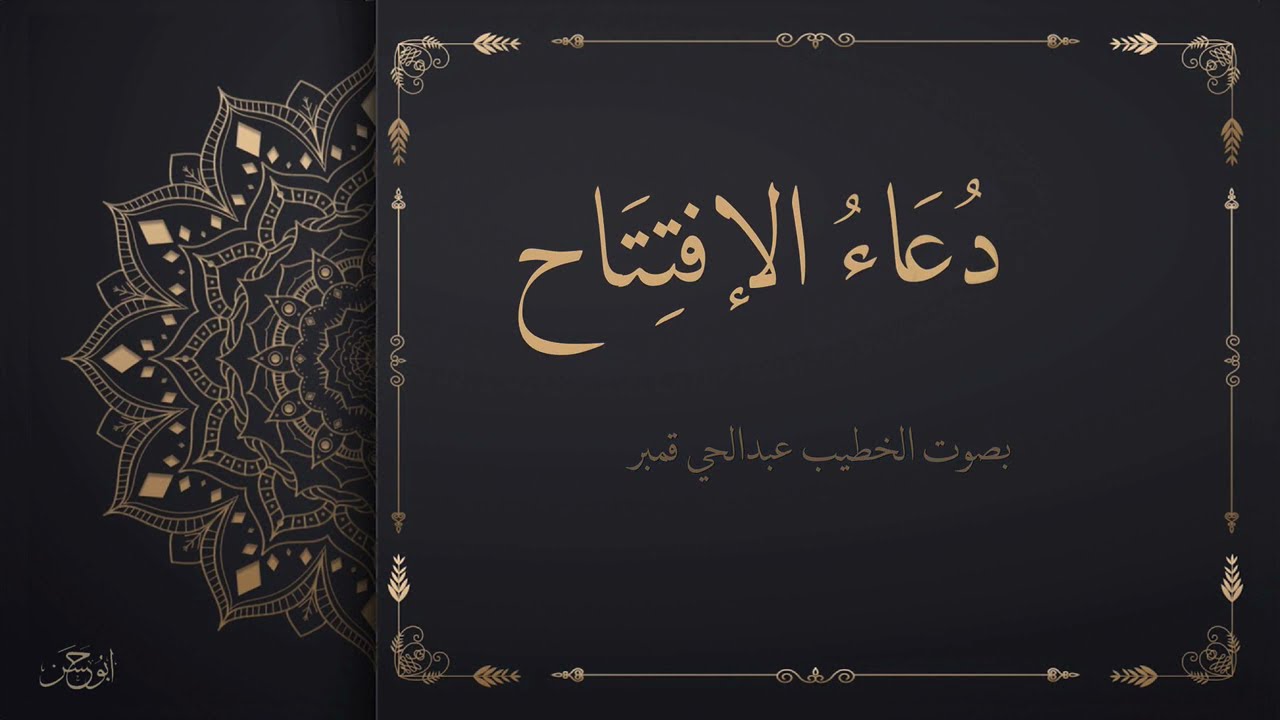 دُعَاءُ الإفتِتَاح
بصوت الخطيب عبدالحي قمبر
ابوحسن